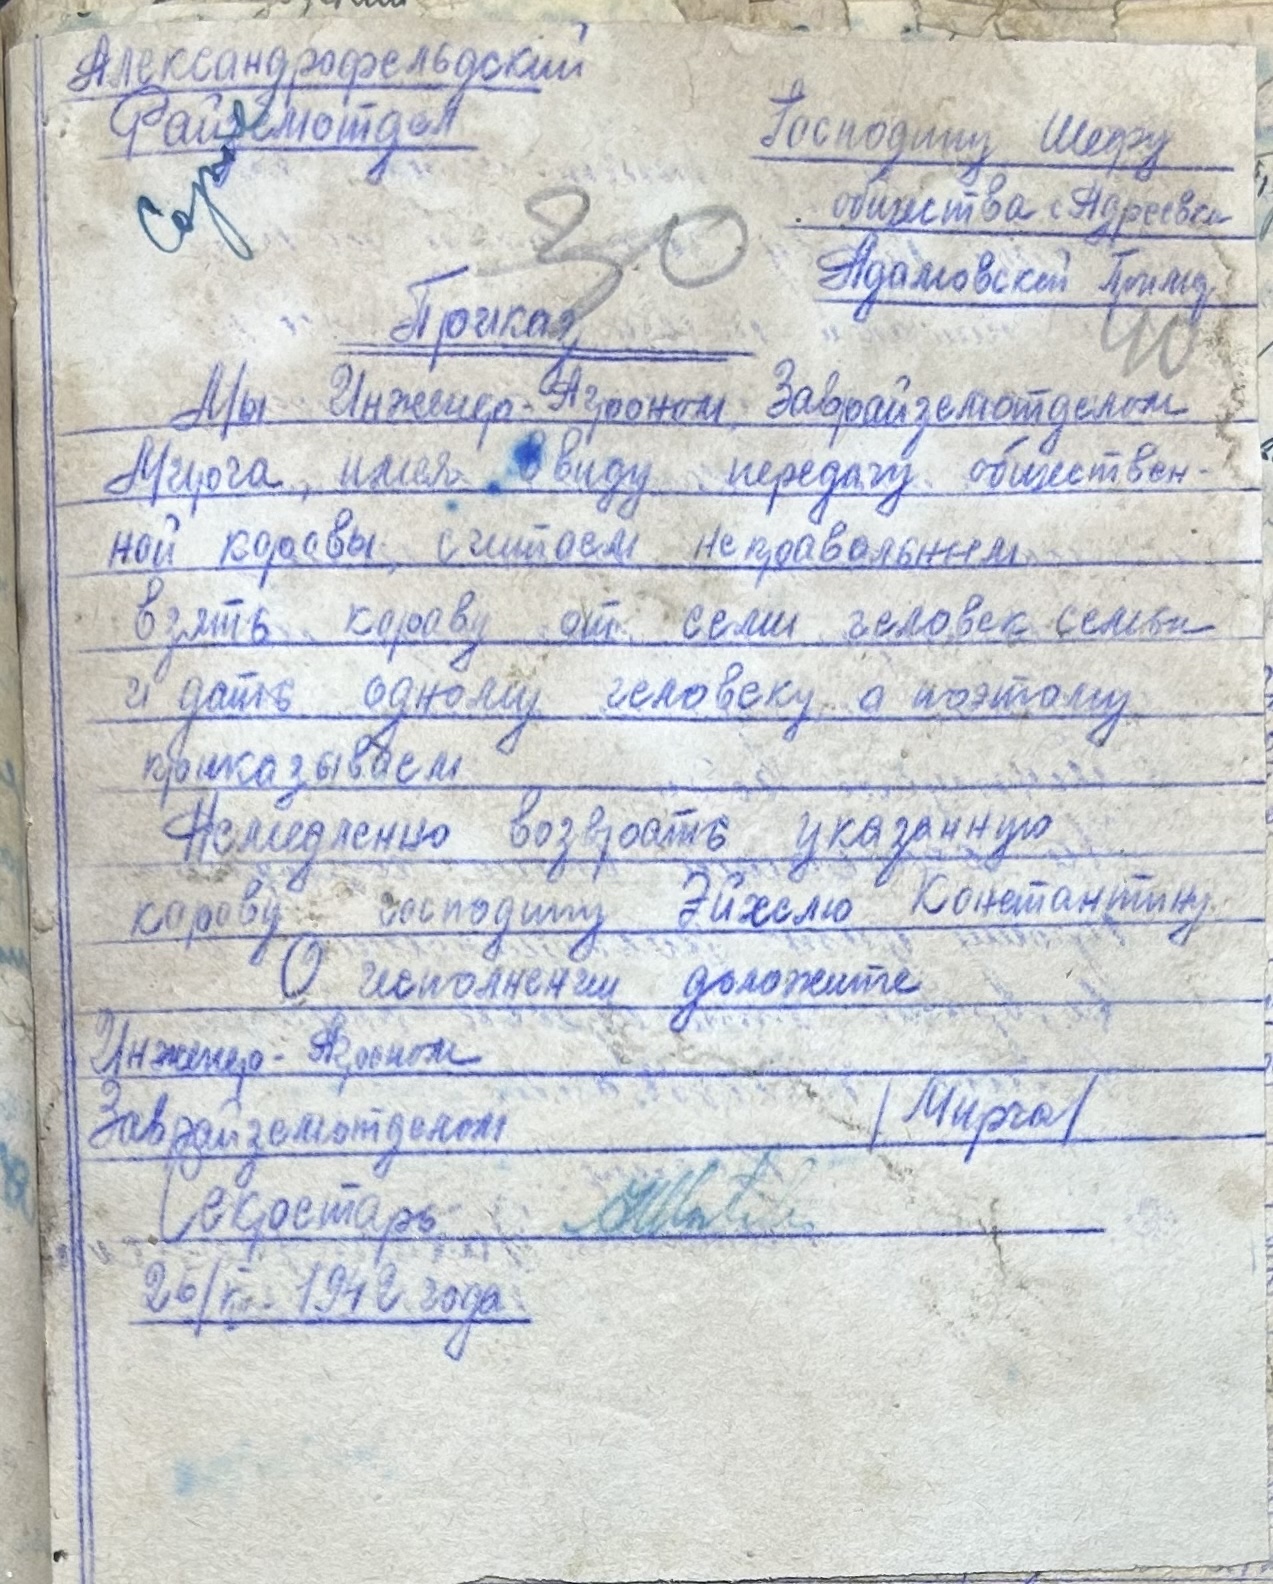 Александрофельдский
Райземотдел
Господину Шефу
общества с Адреевки
Адамовской Прим
30
40
Приказ
Мы Инженер-Агроном, Заврайземотделом
Мирча, имея ввиду передачу обществен-
ной коровы, считаем неправальным
взять корову от семи человек семьи
и дать одному человеку а поэтому
приказываем
Немедленно возврать указанную
корову господину Эйхелю Константину
О исполнении доложите
Инженер-Агроном
Заврайземотделом /Мирча/
Секретарь
26/ 1942 года